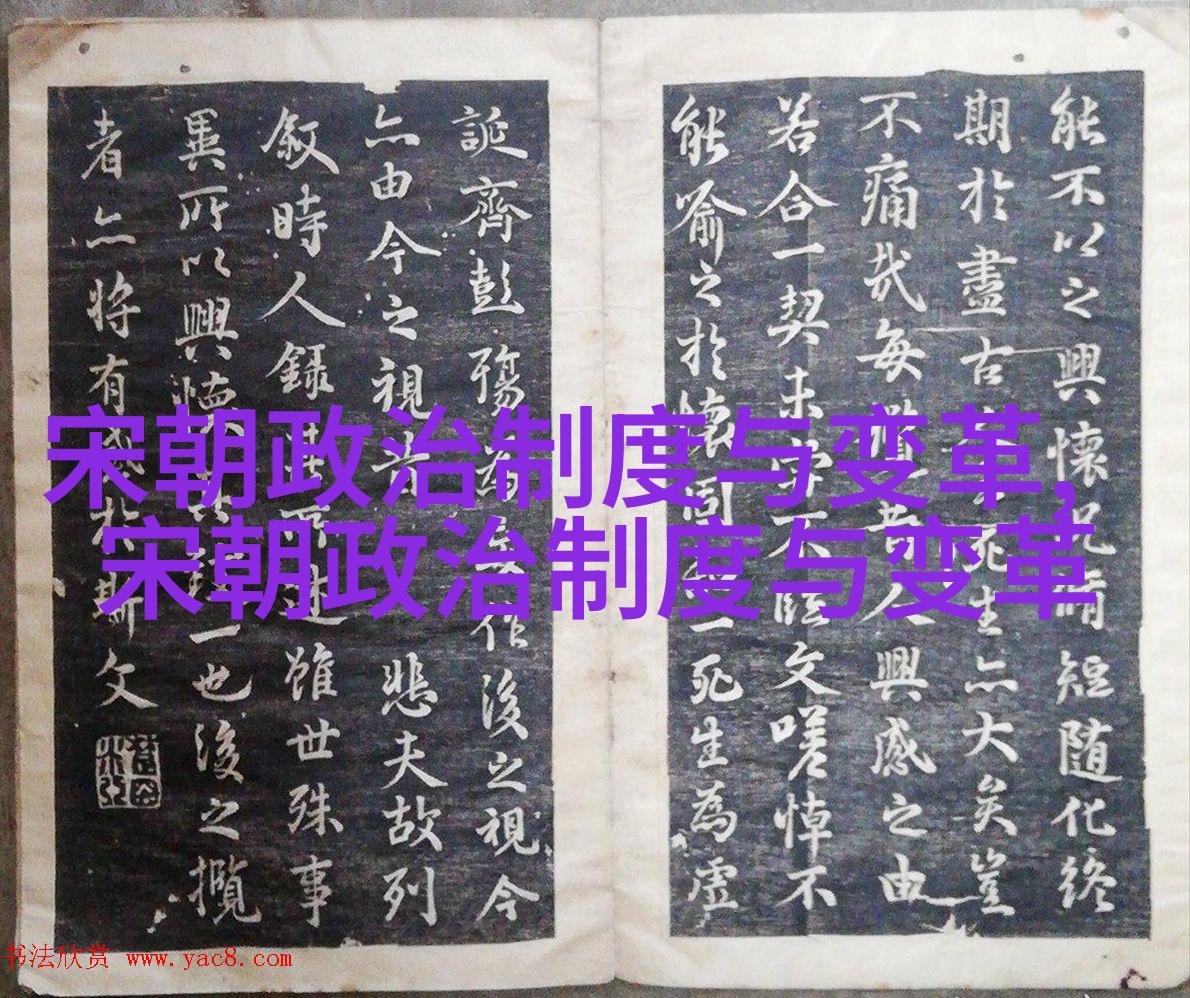 能不以之興懷況脩短随化終
期於盡古死生亦大矣豈
不痛哉每攬昔人興感之由
若合一契未嘗不臨文嗟悼不
能喻之於懷固知一死生為虛
誕齊彭殤為妄作後之視今
亦由今之視昔悲夫故列
叙時人錄其所述雖世殊事
異所以興懷其致一也後之攬
者亦将有感於斯文
宋朝政治制度与变革,
宋朝政治制度与变革
书法欣赏 www.yac8.com